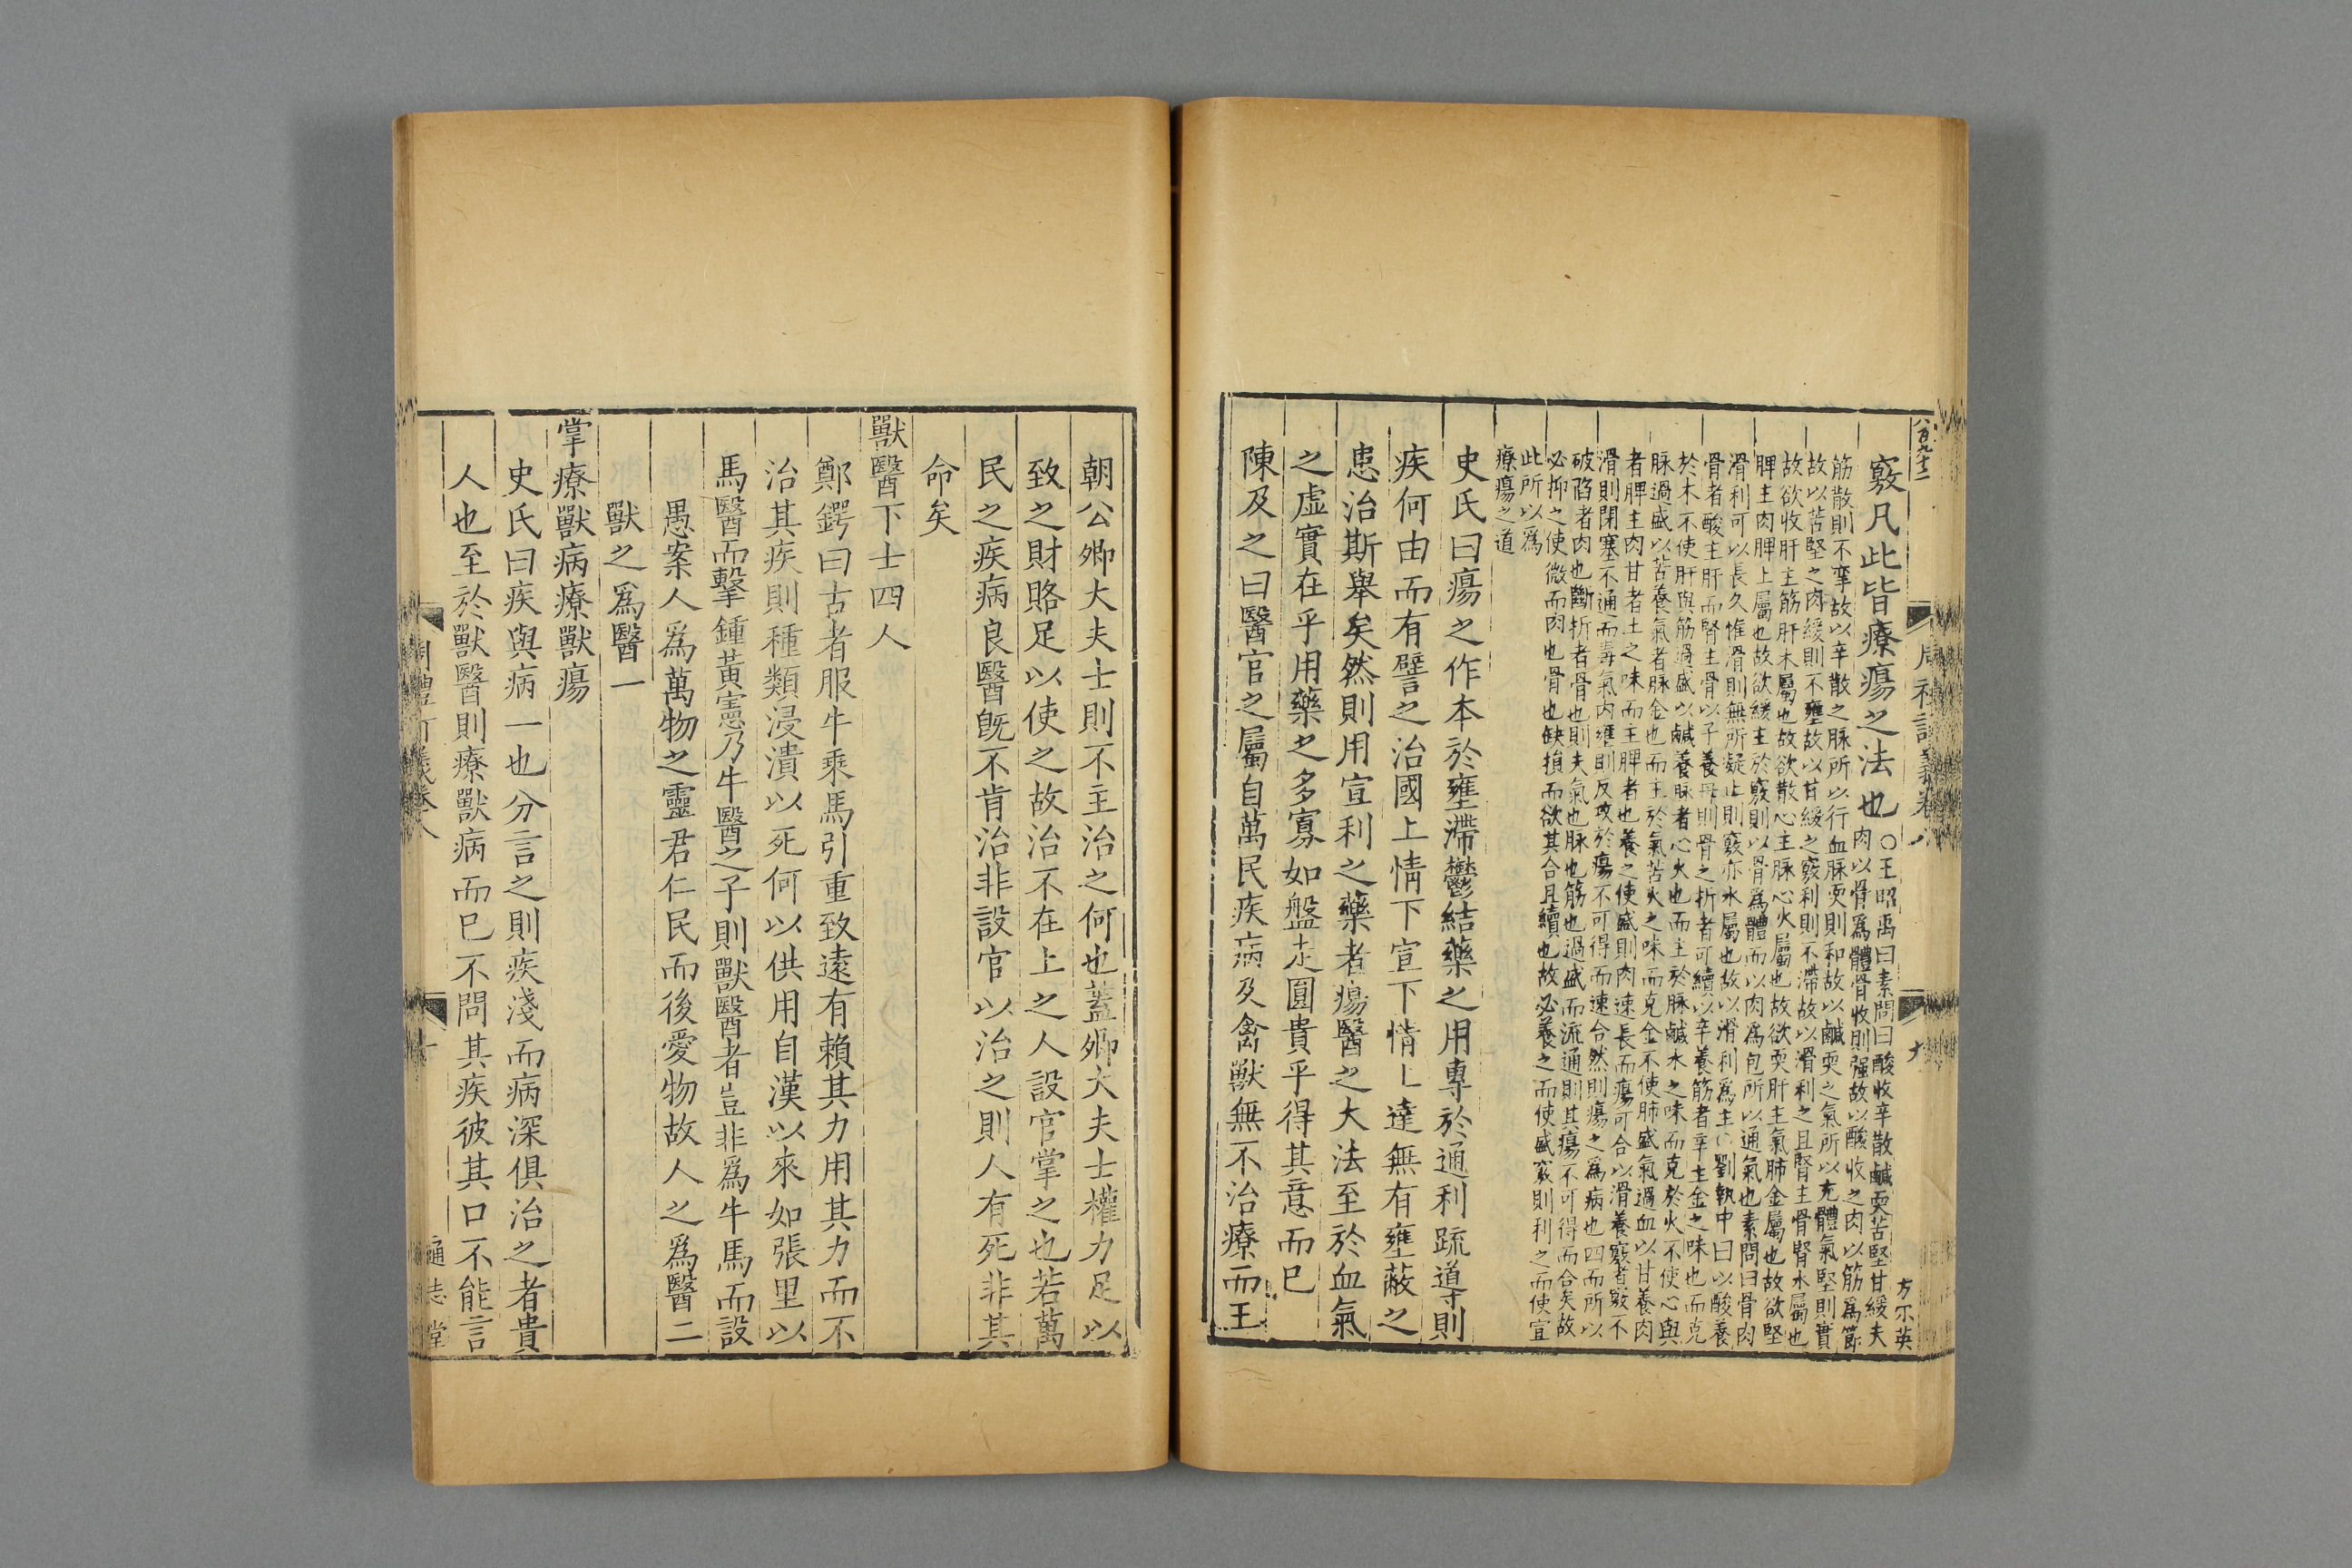 八百九十二 周禮訂義卷八 九 方尔英
竅凡此皆療瘍之法也
○王昭禹曰素問曰酸收辛散鹹耎苦堅甘緩夫
肉以骨爲體骨收則强故以酸收之肉以筋爲節
筋散則不攣故以辛散之脉所以行血脉耎則和故以鹹耎之氣所以充體氣堅則實
故以苦堅之肉緩則不壅故以甘緩之竅利則不滯故以滑利之且腎主骨腎水屬也
故欲收肝主筋肝木屬也故欲散心主脉心火屬也故欲耎肝主氣肺金屬也故欲堅
脾主肉脾土屬也故欲緩主於竅則以骨爲體而以肉爲包所以通氣也素問曰骨肉
滑利可以長久惟滑則無所疑止則竅亦水屬也故以滑利爲主○劉執中曰以酸養
骨者酸主肝而腎主骨以子養母則骨之折者可續以辛養筋者辛主金之味也而克
於木不使肝與筋過盛以鹹養脉者心火也而主於脉鹹水之味而克於火不使心與
脉過盛以苦養氣者脉金也而主於氣苦火之味而克金不使肺盛氣過血以甘養肉
者脾主肉甘者土之味而主脾者也養之使盛則肉速長而瘍可合以滑養竅者竅不
滑則閉塞不通而毒氣内壅則反攻於瘍不可得而速合然則瘍之爲病也四而所以
破陷者肉也斷折者骨也則夫氣也脉也筋也過盛而流通則其瘍不可得而合矣故
必抑之使微而肉也骨也缺損而欲其合且續也故必養之而使盛竅則利之而使宣
此所以爲
療瘍之道
史氏曰瘍之作本於壅滯鬱結藥之用專於通利疏導則
疾何由而有譬之治國上情下宣下情上達無有壅蔽之
患治斯舉矣然則用宣利之藥者瘍醫之大法至於血氣
之虛實在乎用藥之多寡如盤走圓貴乎得其意而已
陳及之曰醫官之屬自萬民疾病及禽獸無不治療而王
朝公卿大夫士則不主治之何也蓋卿大夫士權力足以
致之財賂足以使之故治不在上之人設官掌之也若萬
民之疾病良醫旣不肯治非設官以治之則人有死非其
命矣
獸醫下士四人
鄭鍔曰古者服牛乘馬引重致遠有賴其力用其力而不
治其疾則種類浸潰以死何以供用自漢以來如張里以
馬醫而擊鍾黃憲乃牛醫之子則獸醫者豈非爲牛馬而設
愚案人爲萬物之靈君仁民而後愛物故人之爲醫二
獸之爲醫一
掌療獸病療獸瘍
史氏曰疾與病一也分言之則疾淺而病深俱治之者貴
人也至於獸醫則療獸病而已不問其疾彼其口不能言
周禮訂義卷八 十 通志堂